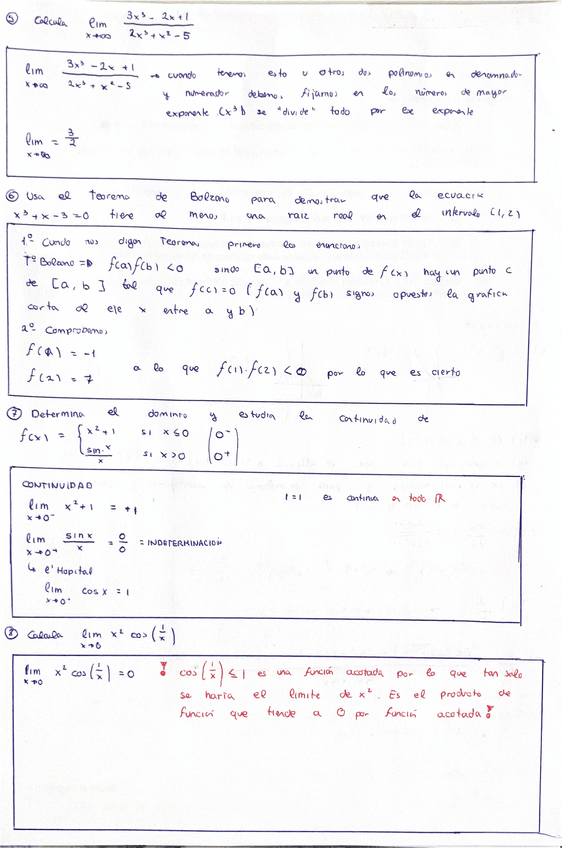 ⑤ Calcula lim x→∞ (3x³ - 2x + 1)/(2x³ + x² - 5)
lim x→∞ (3x³ - 2x + 1)/(2x³ + x² - 5) → cuando tenemos esto u otros dos polinomios en denominador
y numerador debemos fijarnos en los números de mayor
exponente (x³) se "divide" todo por ese exponente
lim x→∞ = 3/2
⑥ Usa el Teorema de Bolzano para demostrar que la ecuación
x³ + x - 3 = 0 tiene al menos una raiz real en el intervalo (1,2)
1º Cuando nos digan Teoremas primero los enunciamos
Tº Bolzano => f(a)f(b) < 0 siendo [a,b] un punto de f(x) hay un punto c
de [a,b] tal que f(c)=0 (f(a) y f(b) signos opuestos la grafica
corta al eje x entre a y b)
2º Comprobamos
f(1) = -1
f(2) = 7
a lo que f(1)·f(2) < 0 por lo que es cierto
⑦ Determina el dominio y estudia la continuidad de
f(x) = { x² + 1 si x ≤ 0 | 0⁻ |
sin x / x si x > 0 | 0⁺ |
CONTINUIDAD
lim x→0⁻ x² + 1 = +1
1 = 1 es continua en todo ℝ
lim x→0⁺ sin x / x = 0/0 = INDETERMINACION
↳ l'Hopital
lim x→0⁺ cos x = 1
⑧ Calcula lim x→0 x² cos(1/x)
lim x→0 x² cos(1/x) = 0
! cos(1/x) ≤ 1 es una función acotada por lo que tan solo
se haría el limite de x². Es el producto de
función que tiende a 0 por función acotada!